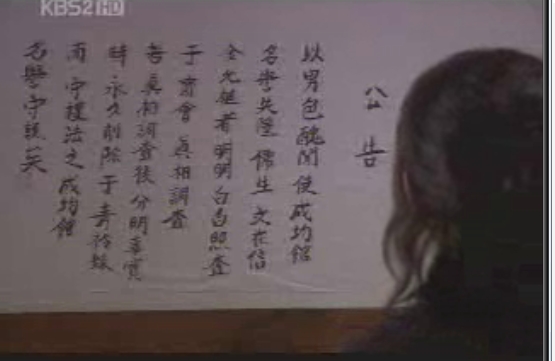 KBS2 HD
公告
以男色醜聞使成均館
名譽失墜 儒生 文在信
金允植者明明白白照査
于齋會 眞相調査
眞相調査後 分明事實
時 永久削除于靑衿錄
而 守禮法之 成均館
名譽守護矣